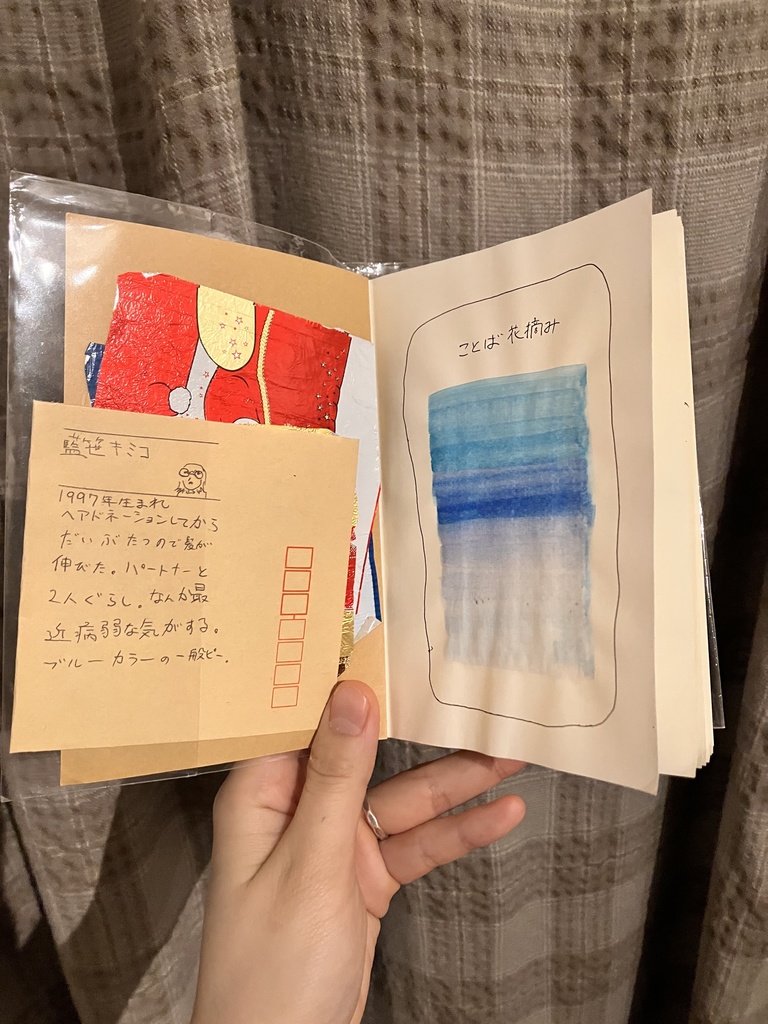 藍笹キミコ
1997年生まれ
ヘアドネーションしてから
だいぶたつので髪が
伸びた。パートナーと
2人ぐらし。なんか最
近病弱な気がする。
ブルーカラーの一般ピー。
ことば花摘み